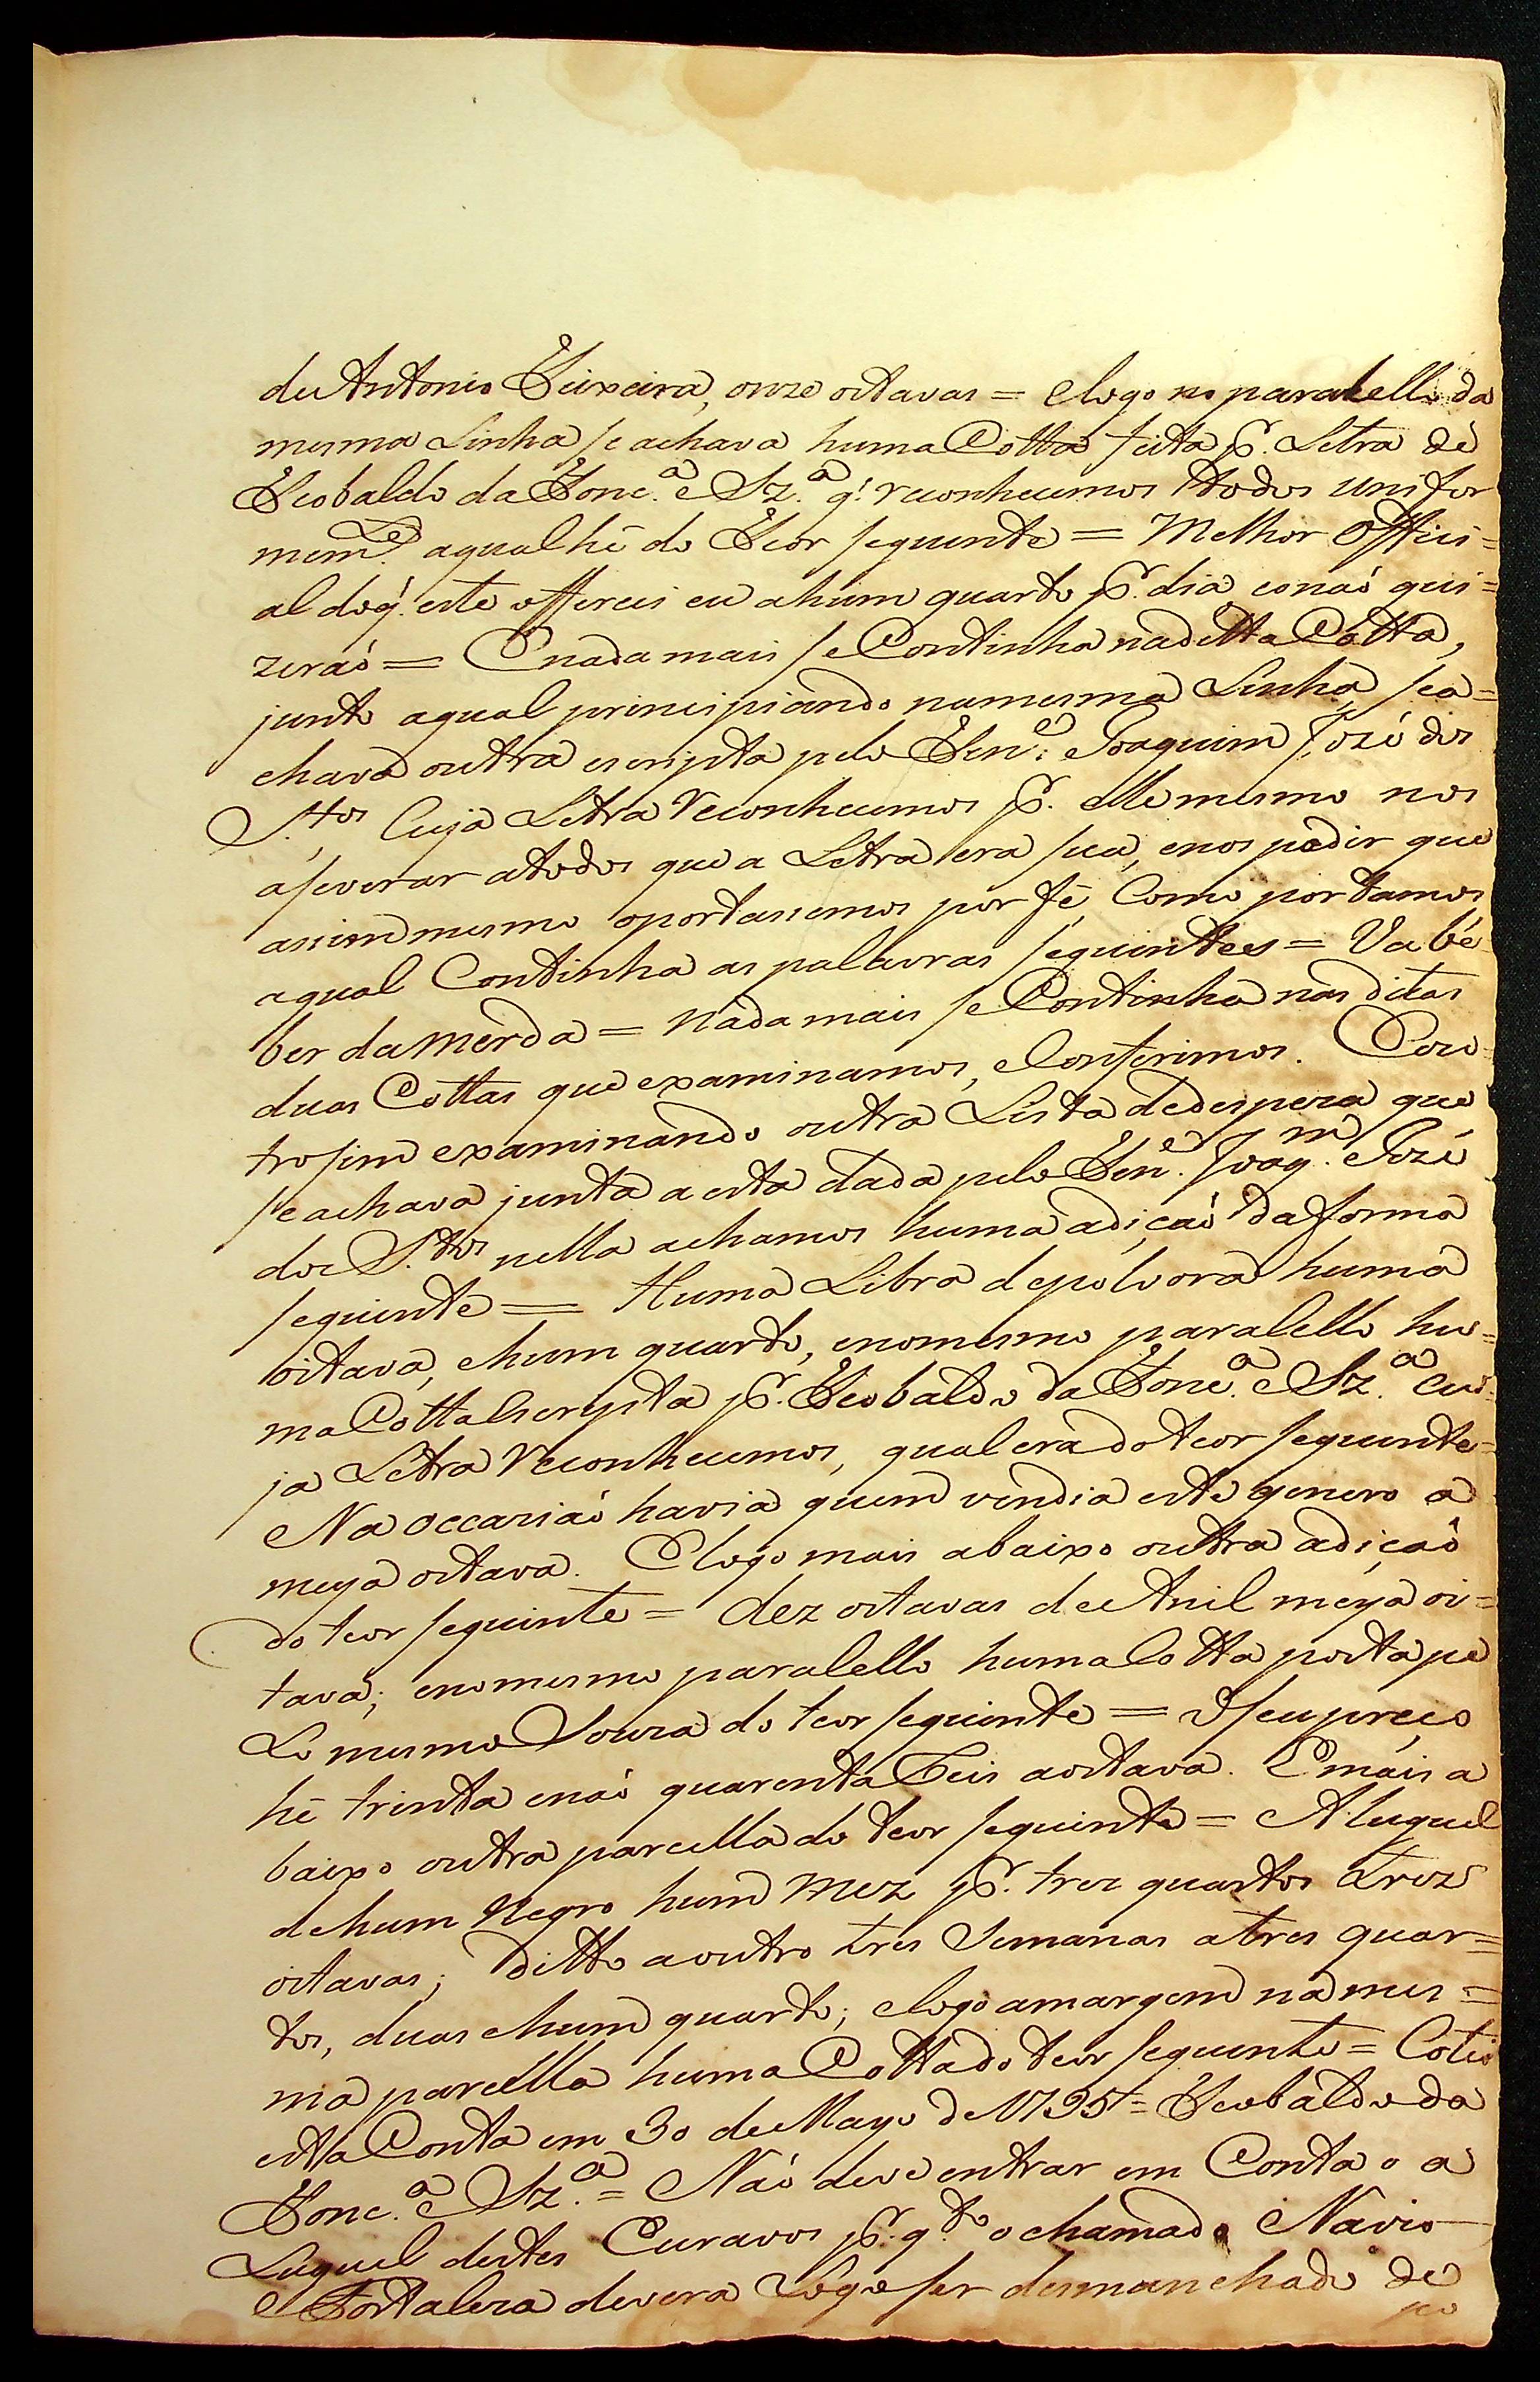 de Antonio Teixeira, onze oitavas = e logo no paralello da
mesma Linha se achava huma Cotta feita pr. Letra de
Teobaldo da Fonc.ª e Sz.ª q.' reconhecemos todos unifor
mem.te aqual hé do Teor seguinte = Melhor Offici=
al doq.' este offereci eu ahum quarto pr. dia eonaó qui=
zeraó = E nada mais se Continha naditta Cotta,
junto aqual principiando namesma Linha sea=
chava outra escripta pelo Ten.e Joaquim Jozé dos
S.tos Cuja Letra Reconhecemos pr. elle mesmo nos
aseverar atodos que a Letra era sua, enos pedir que
assim mesmo oportassemos por fé, Como portamos
aqual Continha as palavras seguintes = Vá bé
ber da merda = nada mais se Continha nas ditas
duas Cottas que examinamos, e Conferimos. E ou=
trosim examinando outra Lista dedespeza que
se achava junta a esta dada pelo Ten.e Joaq.m Jozé
dos S.tos nella achamos huma adiçaó da forma
seguinte = Huma Libra depolvora huma
oitava, ehum quarto, enomesmo paralello hu=
ma Cotta Escripta pr. Teobaldo da Fonc.ª e Sz.ª cu=
ja Letra Reconhecemos, qual era doteor seguinte=
Na occaziaó havia quem vendia este genero a
meya oitava. E logo mais abaixo outra adiçaó
do teor seguinte = dez oitavas de Anil meya oi=
tava; enomesmo paralello huma Cotta posta pe
Lo mesmo Souza do teor seguinte = Oseu preço
hé trinta enaó quarenta Reis aoitava. E mais a
baixo outra parcella do teor seguinte = Aluguel
de hum Negro hum mez pr. tres quartos tres
oitavas; ditto aoutro tres Semanas atres quar=
tos, duas ehum quarto; elogo amargem na mes=
ma parcella huma Cotta do teor seguinte = Cotei
esta Conta em 30 de Mayo de 1795 = Teobaldo da
Fonc.ª e Sz.ª = Naó deve entrar em Conta o a
Luguel destes Escravos pr. q.to o chamado Navio
e Fortaleza devera Logo ser desmanchado de